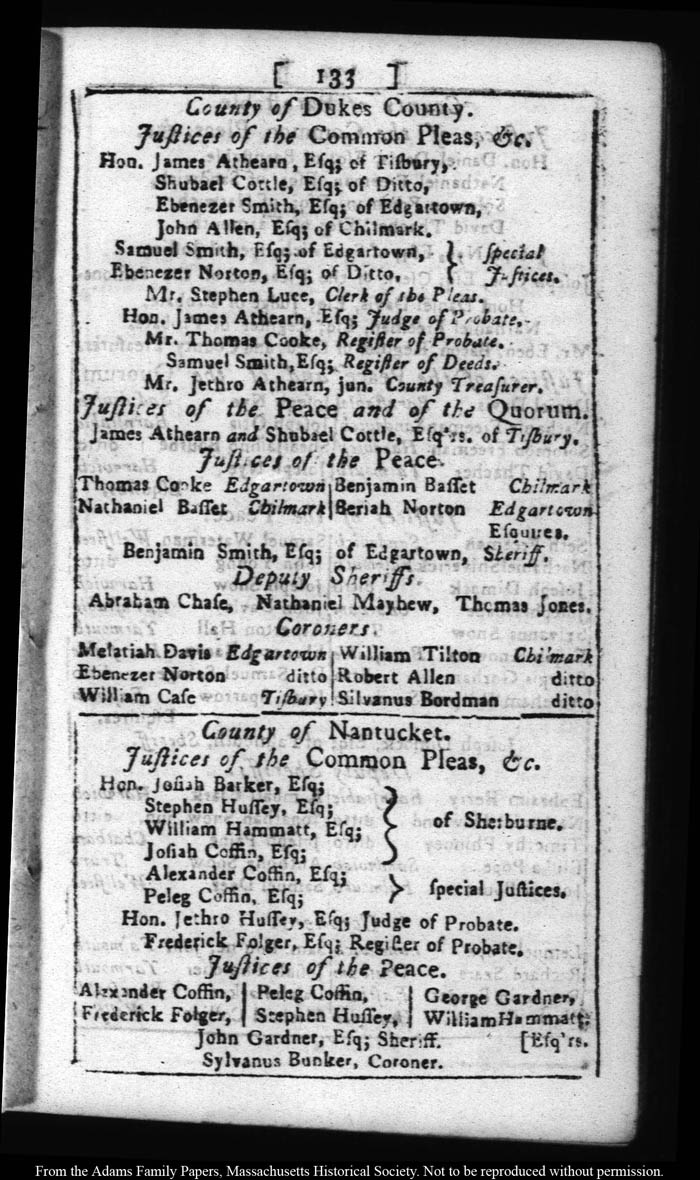 [ 133 ]
County of Dukes County.
Juſtices of the Common Pleas, &c.
Hon. James Athearn, Eſq; of Tiſbury,
Shubael Cottle, Eſq; of Ditto,
Ebenezer Smith, Eſq; of Edgartown,
John Allen, Eſq; of Chilmark.
Samuel Smith, Eſq; of Edgartown, } ſpecial
Ebenezer Norton, Eſq; of Ditto, } Juſtices.
Mr. Stephen Luce, Clerk of the Pleas.
Hon. James Athearn, Eſq; Judge of Probate.
Mr. Thomas Cooke, Regiſter of Probate.
Samuel Smith, Eſq; Regiſter of Deeds.
Mr. Jethro Athearn, jun. County Treaſurer.
Juſtices of the Peace and of the Quorum.
James Athearn and Shubael Cottle, Eſq'rs. of Tiſbury.
Juſtices of the Peace.
Thomas Cooke Edgartown | Benjamin Baſſet Chilmark
Nathaniel Baſſet Chilmark | Beriah Norton Edgartown
Eſquires.
Benjamin Smith, Eſq; of Edgartown, Sheriff.
Deputy Sheriffs.
Abraham Chaſe, Nathaniel Mayhew, Thomas Jones.
Coroners.
Melatiah Davis Edgartown | William Tilton Chilmark
Ebenezer Norton ditto | Robert Allen ditto
William Caſe Tiſbury | Silvanus Bordman ditto
County of Nantucket.
Juſtices of the Common Pleas, &c.
Hon. Joſiah Barker, Eſq;
Stephen Huſſey, Eſq;
William Hammatt, Eſq; } of Sherburne.
Joſiah Coffin, Eſq;
Alexander Coffin, Eſq;
Peleg Coffin, Eſq; } ſpecial Juſtices.
Hon. Jethro Huſſey, Eſq; Judge of Probate.
Frederick Folger, Eſq; Regiſter of Probate.
Juſtices of the Peace.
Alexander Coffin, | Peleg Coffin, | George Gardner,
Frederick Folger, | Stephen Huſſey, | William Hammatt.
John Gardner, Eſq; Sheriff. [Eſq'rs.
Sylvanus Bunker, Coroner.
From the Adams Family Papers, Massachusetts Historical Society. Not to be reproduced without permission.